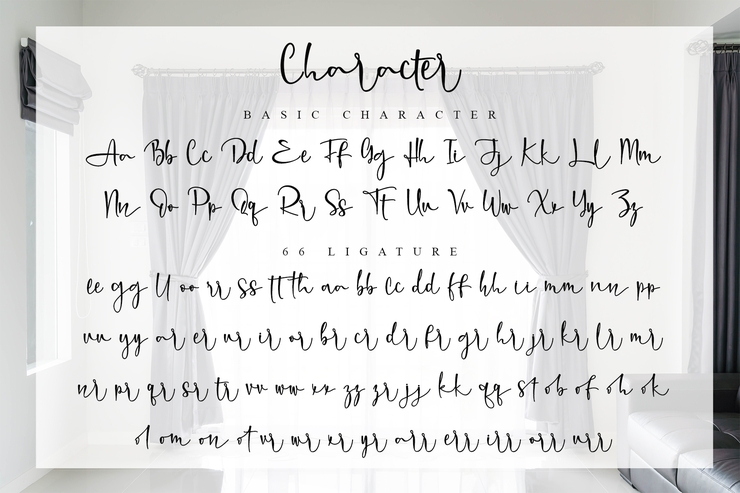 Character
BASIC CHARACTER
Aa Bb Cc Dd Ee Ff Gg Hh Ii Jj Kk Ll Mm
Nn Oo Pp Qq Rr Ss Tt Uu Vv Ww Xx Yy Zz
66 LIGATURE
ee gg ll oo rr ss tt th aa bb cc dd ff hh ii mm nn pp
uu yy ar er ur ir or br cr dr fr gr hr jr kr lr mr
nr pr qr sr tr vv ww xx zz zr jj kk qq st ob of oh ok
ol om on ot vr wr xr yr arr err irr orr urr